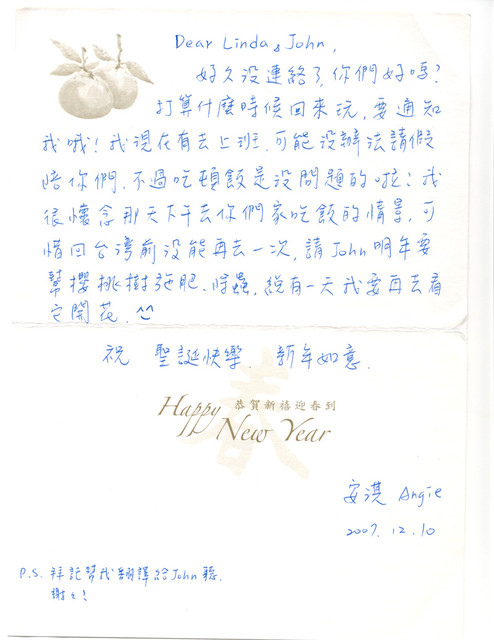 Dear Linda & John,
好久没連絡了,你們好嗎?
打算什麼時候回來玩,要通知
我哦!我現在有去上班,可能没辦法請假
陪你們,不過吃頓飯是没問題的啦!我
很懷念那天下午去你們家吃飯的情景,可
惜回台灣前没能再去一次,請John明年要
幫櫻桃樹施肥、除蟲,總有一天我要再去看
它開花。^^
祝 聖誕快樂. 新年如意.
恭賀新禧迎春到
Happy
New Year
春
安淇 Angie
2007. 12. 10
P.S. 拜託幫我翻譯給John聽.
謝謝!